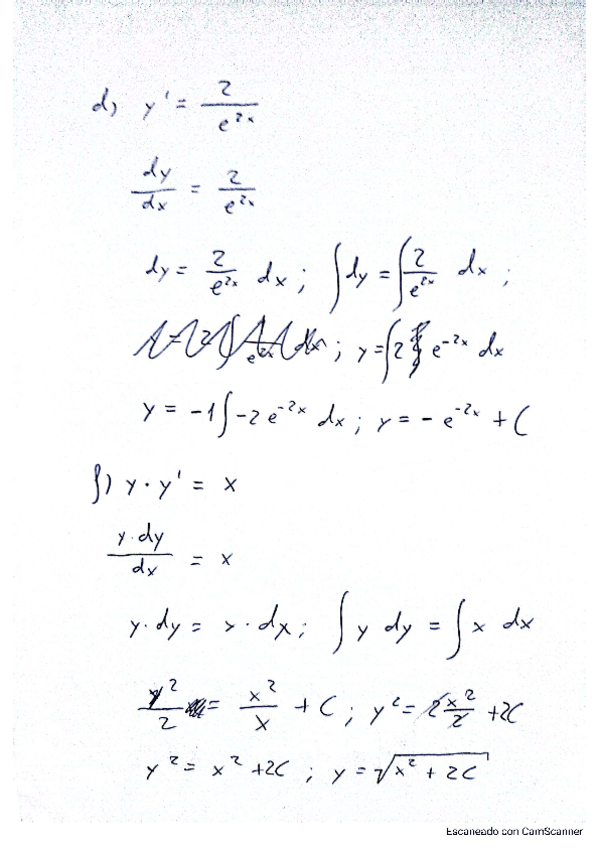 d) y' = 2/e^{2x}
dy/dx = 2/e^{2x}
dy = 2/e^{2x} dx ; ∫dy = ∫ 2/e^{2x} dx ;
; y = ∫ 2 e^{-2x} dx
y = -1 ∫ -2 e^{-2x} dx ; y = - e^{-2x} + C
f) y · y' = x
y · dy/dx = x
y · dy = x · dx ; ∫ y dy = ∫ x dx
y^2/2 = x^2/x + C ; y^2 = 2x^2/2 + 2C
y^2 = x^2 + 2C ; y = √(x^2 + 2C)
Escaneado con CamScanner